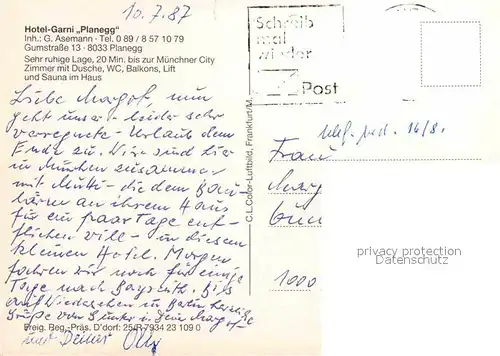 10.7.87
Hotel-Garni „Planegg"
Inh.: G. Asemann · Tel. 0 89 / 8 57 10 79
Gumstraße 13 · 8033 Planegg
Sehr ruhige Lage, 20 Min. bis zur Münchner City
Zimmer mit Dusche, WC, Balkons, Lift
und Sauna im Haus
Schreib
mal
wieder
Post
Liebe Margot, nun
geht unser - leider sehr
verregnete - Urlaub dem
Ende zu. Wir sind hier
in München zusammen
mit Mutti - die dem Bau-
lärm an ihrem Haus
für ein paar Tage ent-
fliehen will - in diesem
kleinen Hotel. Morgen
fahren wir noch für einige
Tage nach Bayreuth. Bis
auf Wiedersehen in Berlin herzliche
Grüße von und Dein
und Dieter
Freig. Reg.-Präs. D'dorf: 25/R 7934 23 109 0
C.L.Color-Luftbild, Frankfurt/M.
14/8.
Frau
1000
privacy protection
Datenschutz